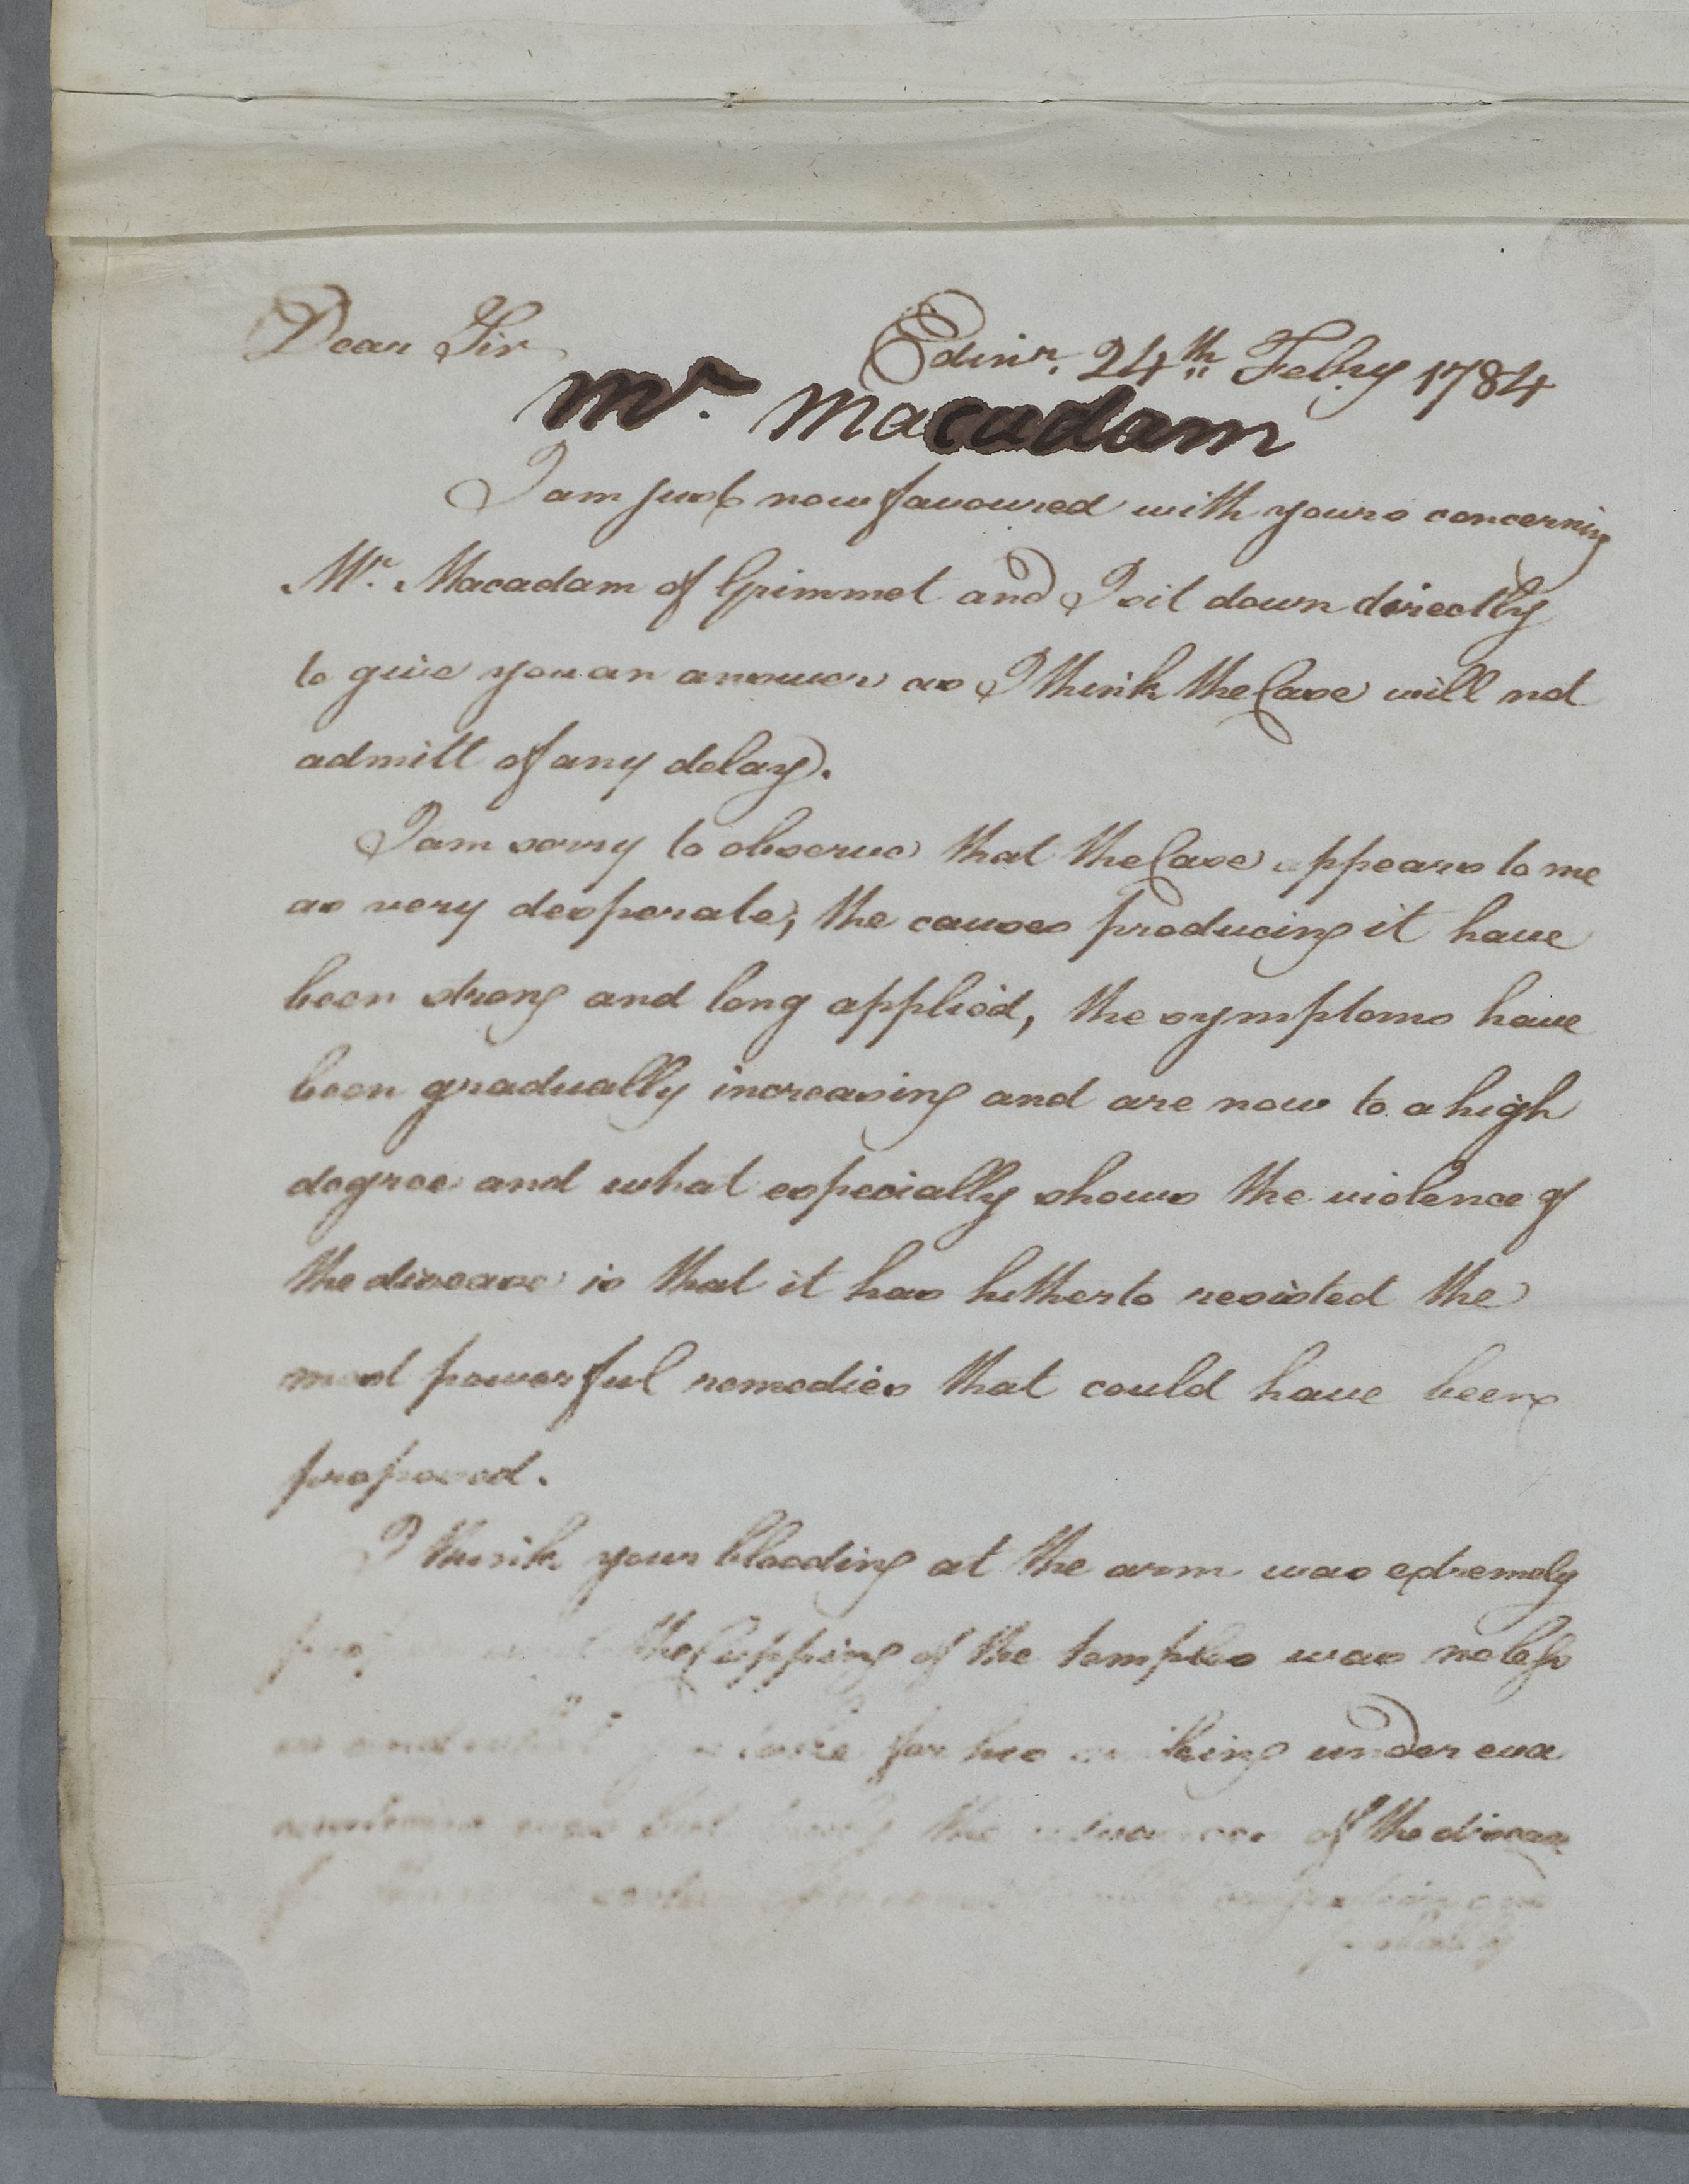 Dear Sir
Edinr. 24th Febry 1784
Mr. Macadam
I am just now favoured with yours concerning
Mr. Macadam of Grimmet and I sit down directly
to give you an answer as I think the Case will not
admitt of any delay.
I am sorry to observe that the Case appears to me
as very desperate, the causes producing it have
been strong and long applied, the symptoms have
been gradually increasing and are now to a high
degree and what especially shows the violence of
the disease is that it has hitherto resisted the
most powerful remedies that could have been
proposed.
I think your bleeding at the arm was extremely
the Cupping of the temples was no less
for his under eva
the of the disease